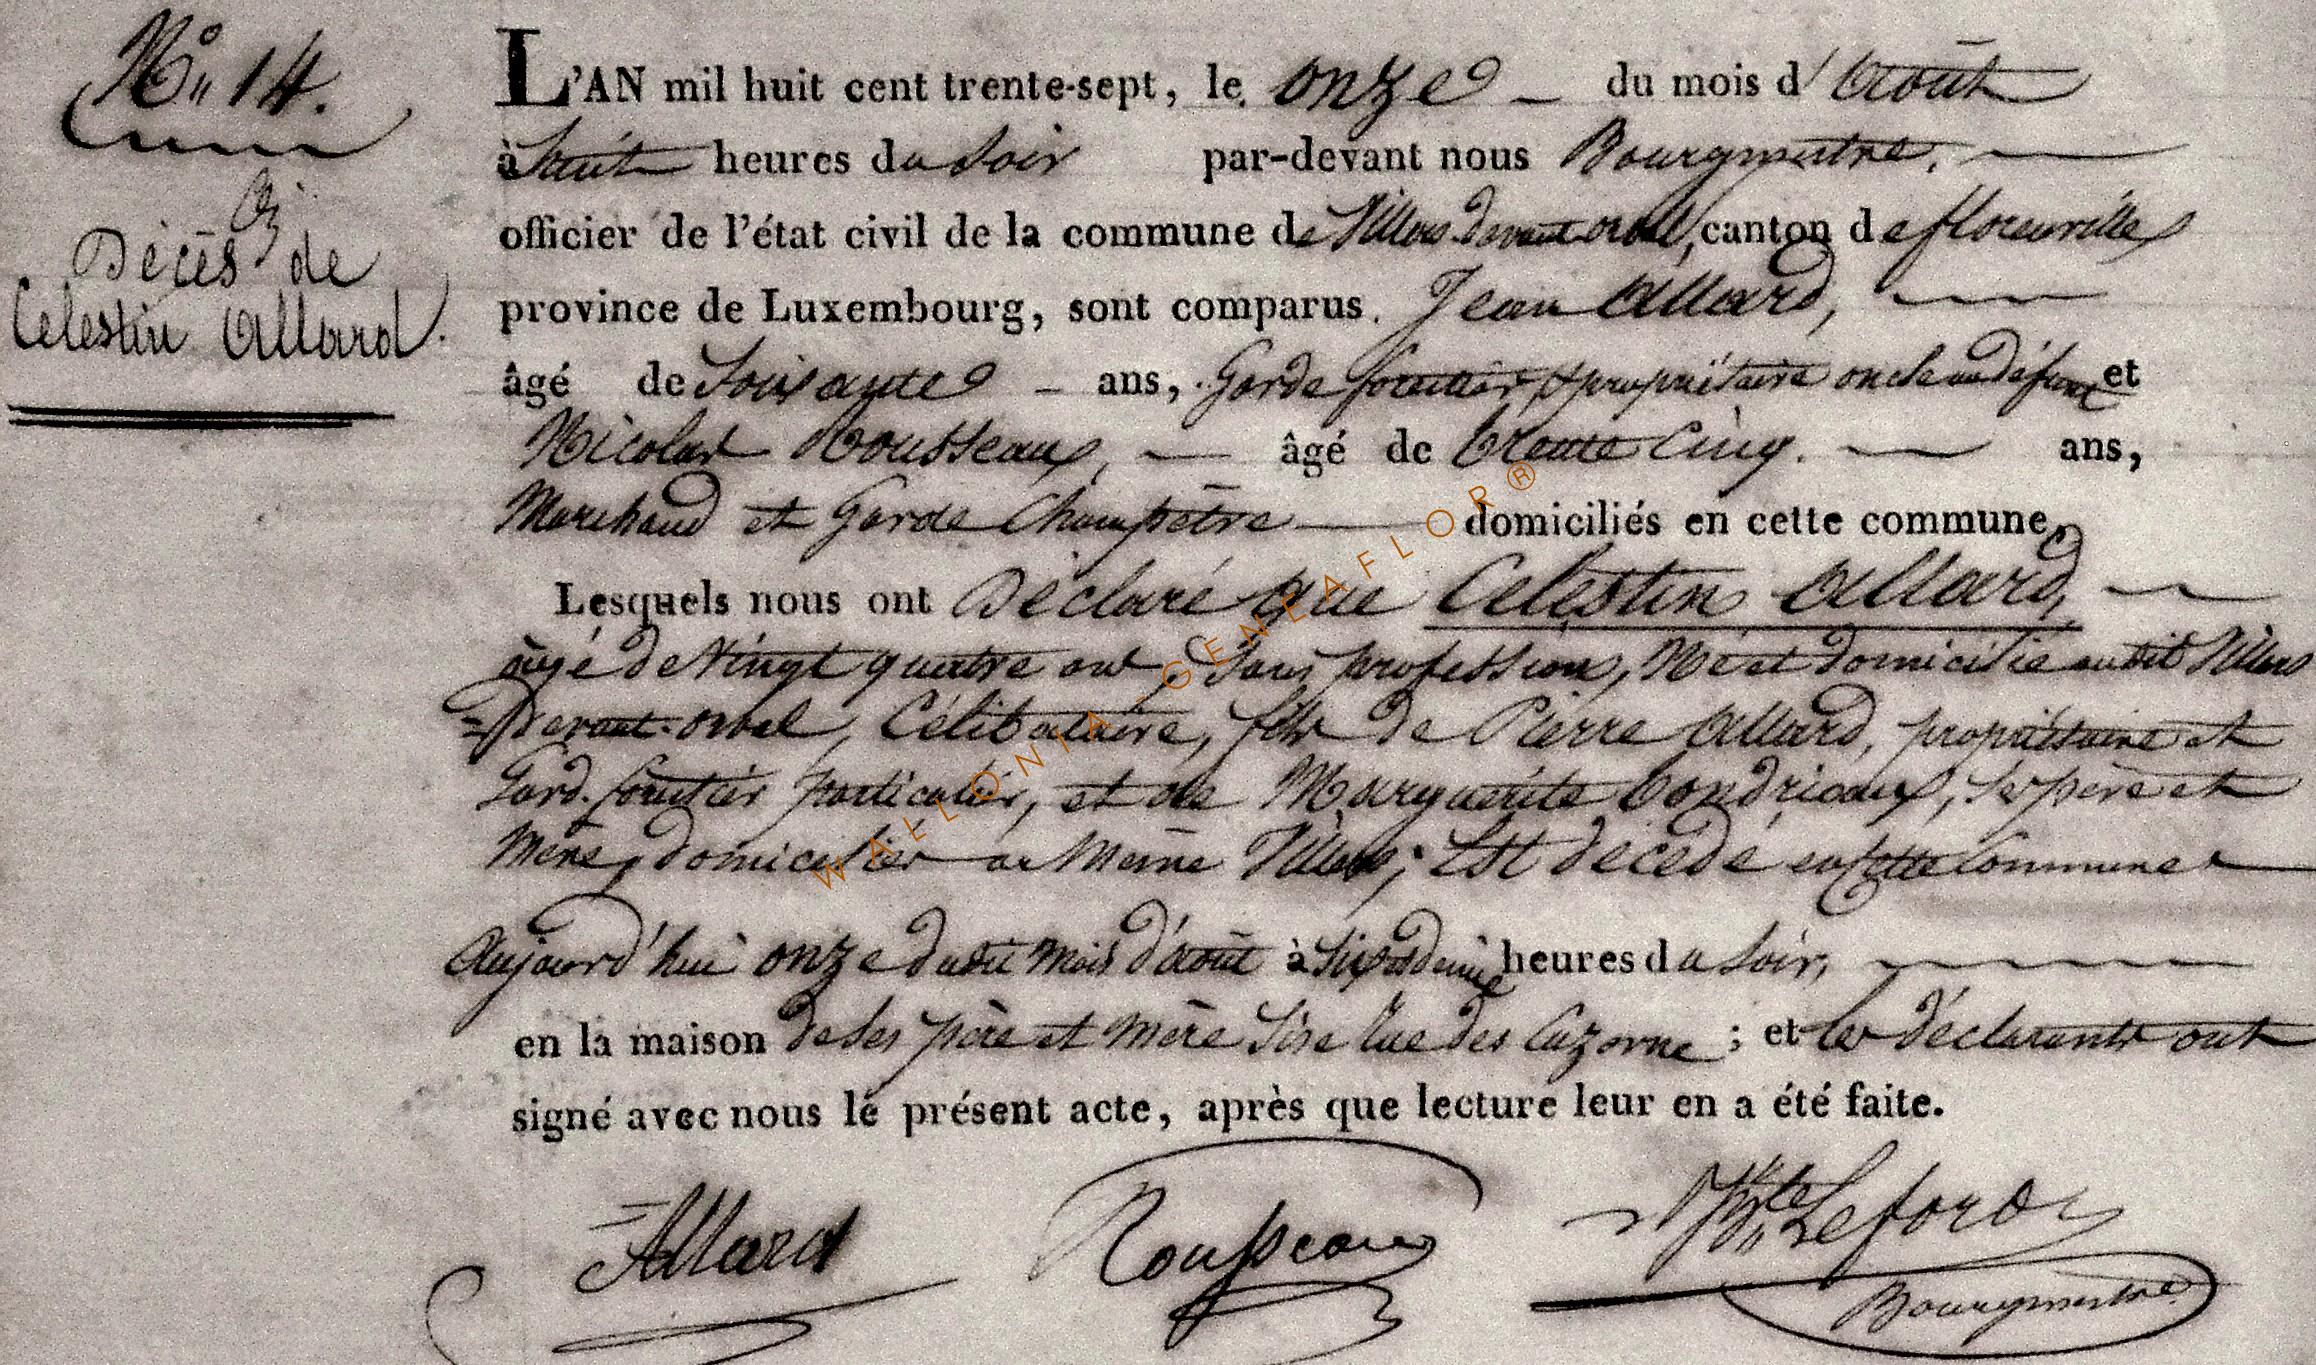 N° 14.
Décès de
Celestin Allard.
L'AN mil huit cent trente-sept, le onze du mois d'Août
à huit heures du Soir par-devant nous Bourgmestre,
officier de l'état civil de la commune de Villers-devant-orval, canton de florenville
province de Luxembourg, sont comparus Jean Allard,
âgé de Soixante ans, Garde forestier & propriétaire oncle au défunt et
Nicolas Rousseaux, âgé de trente Cinq ans,
Marchand et Garde Champêtre domiciliés en cette commune,
Lesquels nous ont Déclaré que Celestin Allard,
âgé de Vingt quatre ans, Sans profession, Né et domicilié audit Villers
=Devant-orval, Célibataire, fils de Pierre Allard, propriétaire et
Gard. forestier particulier, et de Marguerite, Ses père et
Mère, domiciliés au Même Villers; Est décédé en Cette Commune
Aujourd'hui onze dudit Mois d'août à Six et demie heures du Soir,
en la maison de Ses père et Mère Sise Rue des; et les déclarants ont
signé avec nous le présent acte, après que lecture leur en a été faite.
Allard Rousseaux Leford
Bourgmestre
WALLONIA-GENEAFLOR®